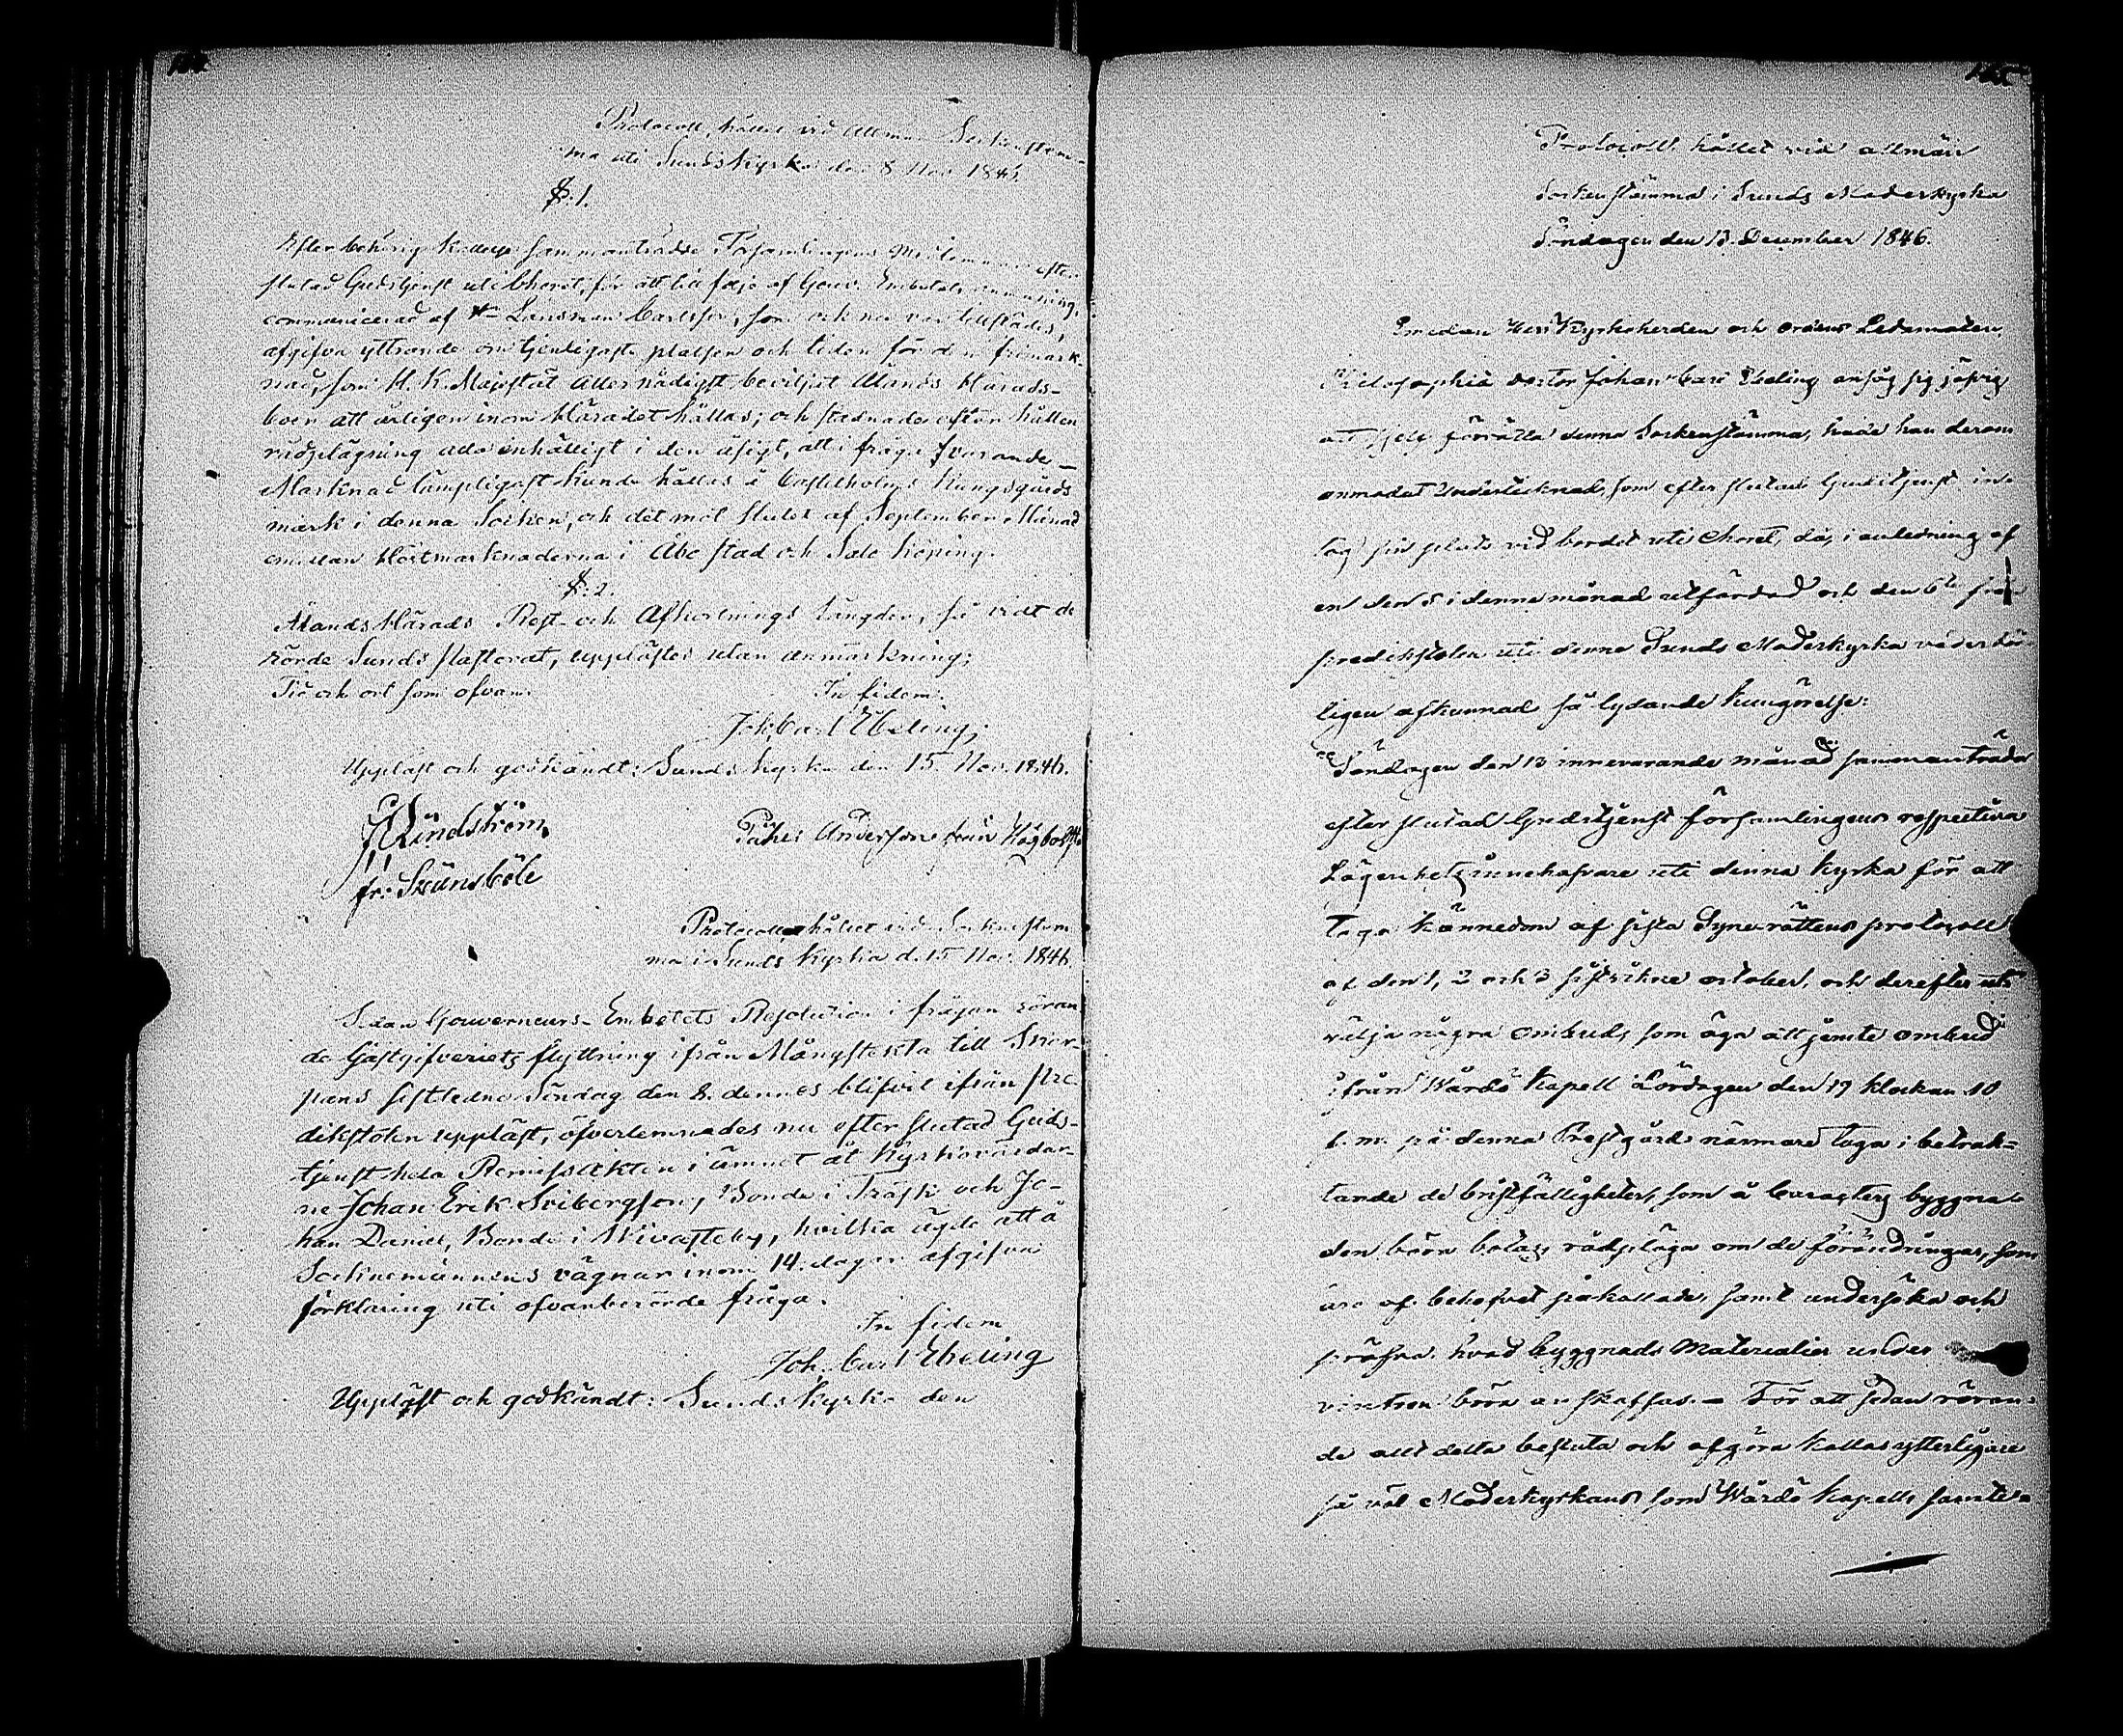 Protocoll, hållet vid Allmän Sockenstem-
ma uti Sunds Kyrka den 8 Nov. 1846.
§.1.
Efter behörig Kallelse sammanträdde Församlingens Medlemmar efter
slutad Gudstjenst uti Choret, för att till följe af Gouv. Embetets
communicerad af Hr Länsman Carlsson, som ock nu var tillstädes,
afgifva yttrande om tjenligaste platsen och tiden för den frimark-
nad, som H. K. Majestät Allernådigst beviljat Ålands Härads-
boer att årligen inom Häradet hållas; och stadnade efter hållen
rådplägning alla enhälligt i den åsigt, att i fråga varande
Marknad lämpligast kunde hållas å Castelholms Kungsgårds
mark i denna Socken, och det mot slutet af September Månad
emellan Höstmarknaderna i Åbo stad och Salo Köping.
§.2.
Ålands Härads Rest- och Afkortnings Längder, så vidt de
rörde Sunds Pastorat, upplästes utan anmärkning;
Tid och ort som ofvan.
In fidem:
Joh. Carl Ebeling;
Uppläst och godkändt: Sunds Kyrka den 15 Nov. 1846.
Lindström
Petter Andersson från Högbolsta
fr: Svensböle
Protocoll hållet vid Sockenstem
ma i Sunds Kyrka d. 15 Nov. 1846.
Sedan Gouverneurs-Embetets Resolution i frågan röran
de Gästgifveriets flyttning ifrån Mångstekta till Skar-
pans sistledne Söndag den 8. dennes blifvit ifrån Pre-
dikstolen uppläst, öfverlemnades nu efter slutad Guds-
tjenst hela Remissakten i ämnet åt Kyrkovärdar-
ne Johan Erik Sviberggson, Bonde i Träsk och Jo-
han Daniel, Bonde i Kivasteby, hvilka ägde att å
Sockenemännens vägnar inom 14. dagar afgifva
förklaring uti ofvanberörde fråga.
In fidem
Joh. Carl Ebeling
Uppläst och godkändt: Sunds Kyrka den
Protocoll hållet vid allmän
Sockenstämma i Sunds Moderkyrka
Söndagen den 13. December 1846.
Emedan Herr Kyrkoherden och ordens Ledamoten,
Philosophiæ doctor Johan Carl Ebeling ansåg sig jäfvig
att sjelf förrätta denna Sockenstämma, hade han derom
anmodat Undertecknad, som efter slutad Gudstjenst in-
tog sin plats vid bordet uti Choret, då, i anledning af
en den 5 i denne månad utfärdad och den 6te från
predikstolen uti denne Sunds Moderkyrka vederbör-
ligen afkunnad så lydande kungörelse:
"Söndagen den 13 innevarande månad sammanträda
efter slutad Gudstjenst församlingens respective
Lägenhetsinnehafvare uti denna kyrka för att
taga kännedom af sista Synerättens protocoll
af den 1, 2 och 3 sistvikne october, och derefter ut-
välja några ombud, som äga att jemte ombud
ifrån Wårdö Kapell Lördagen den 19 klockan 10
f. m. på denna Prestgård närmare taga i betrak-
tande de bristfälligheter, som å Boragsters byggna-
den böra botas, rådpläga om de förändringar, som
äro af behofvet påkallade, samt undersöka och
pröfva hvad byggnads Materialier under
vintren böra anskaffas. – För att sedan röran-
de allt detta besluta och afgöra kallas ytterligare
så väl Moderkyrkans som Wårdö Kapells samtel-